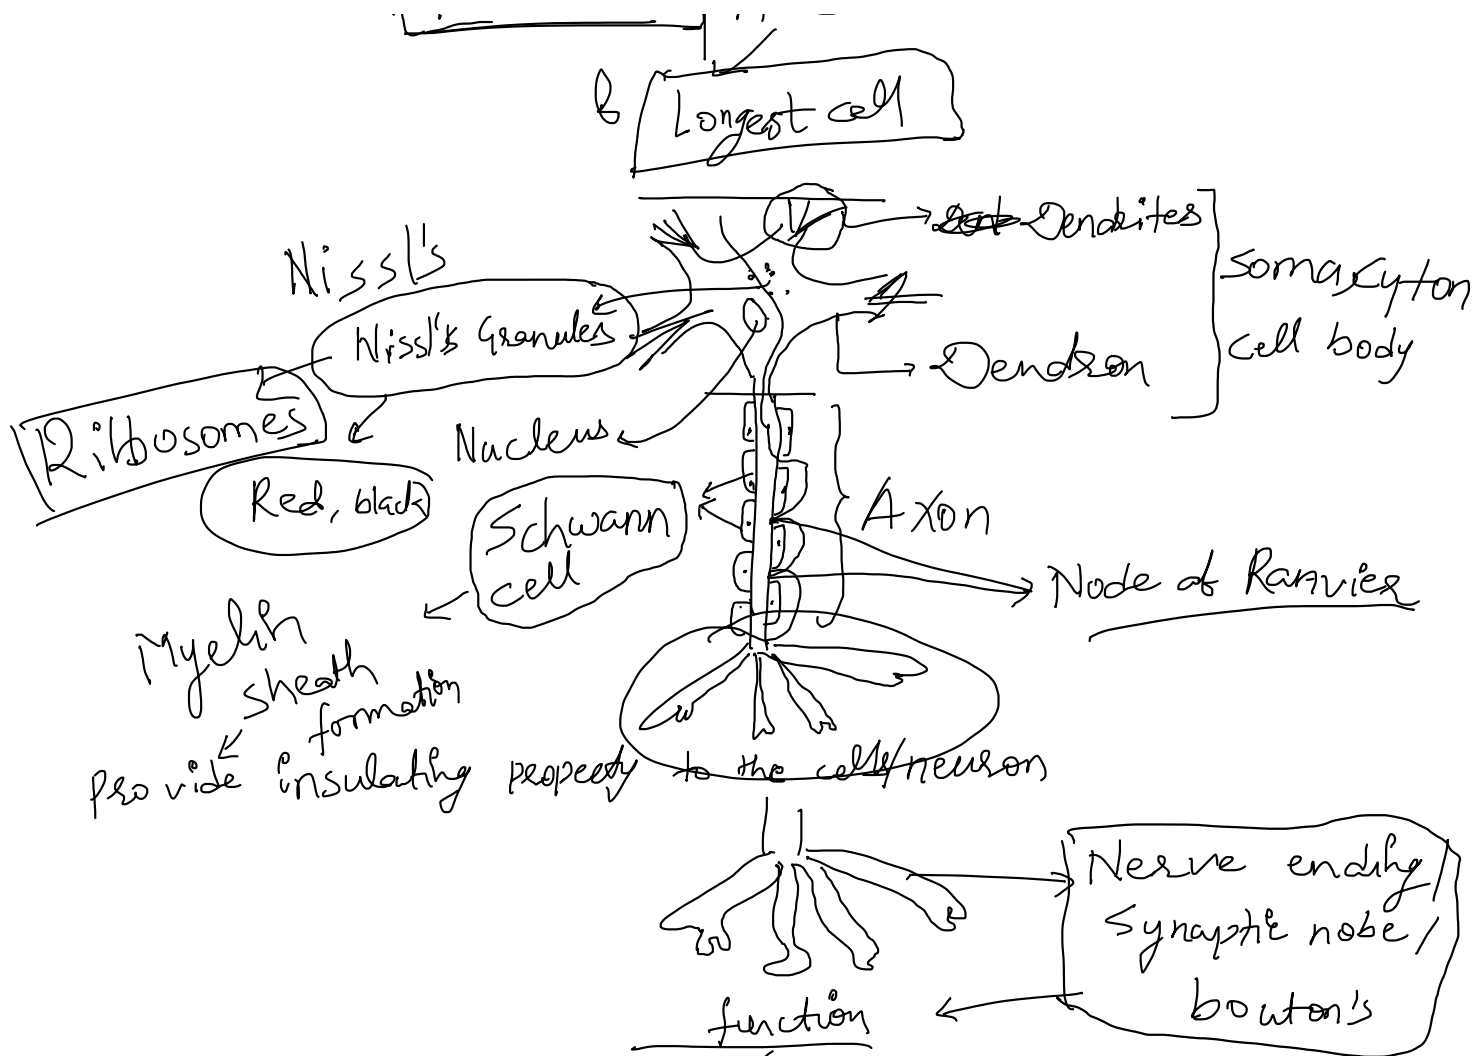 Longest cell
Dendrites
Nissl's
Nissl's Granules
Soma/cyton
cell body
Dendron
Ribosomes
Nucleus
Red, black
Schwann
cell
Axon
Node of Ranvier
Myelin
sheath
formation
Provide insulating property to the cell/neuron
Nerve ending/
Synaptic nobe/
bouton's
function